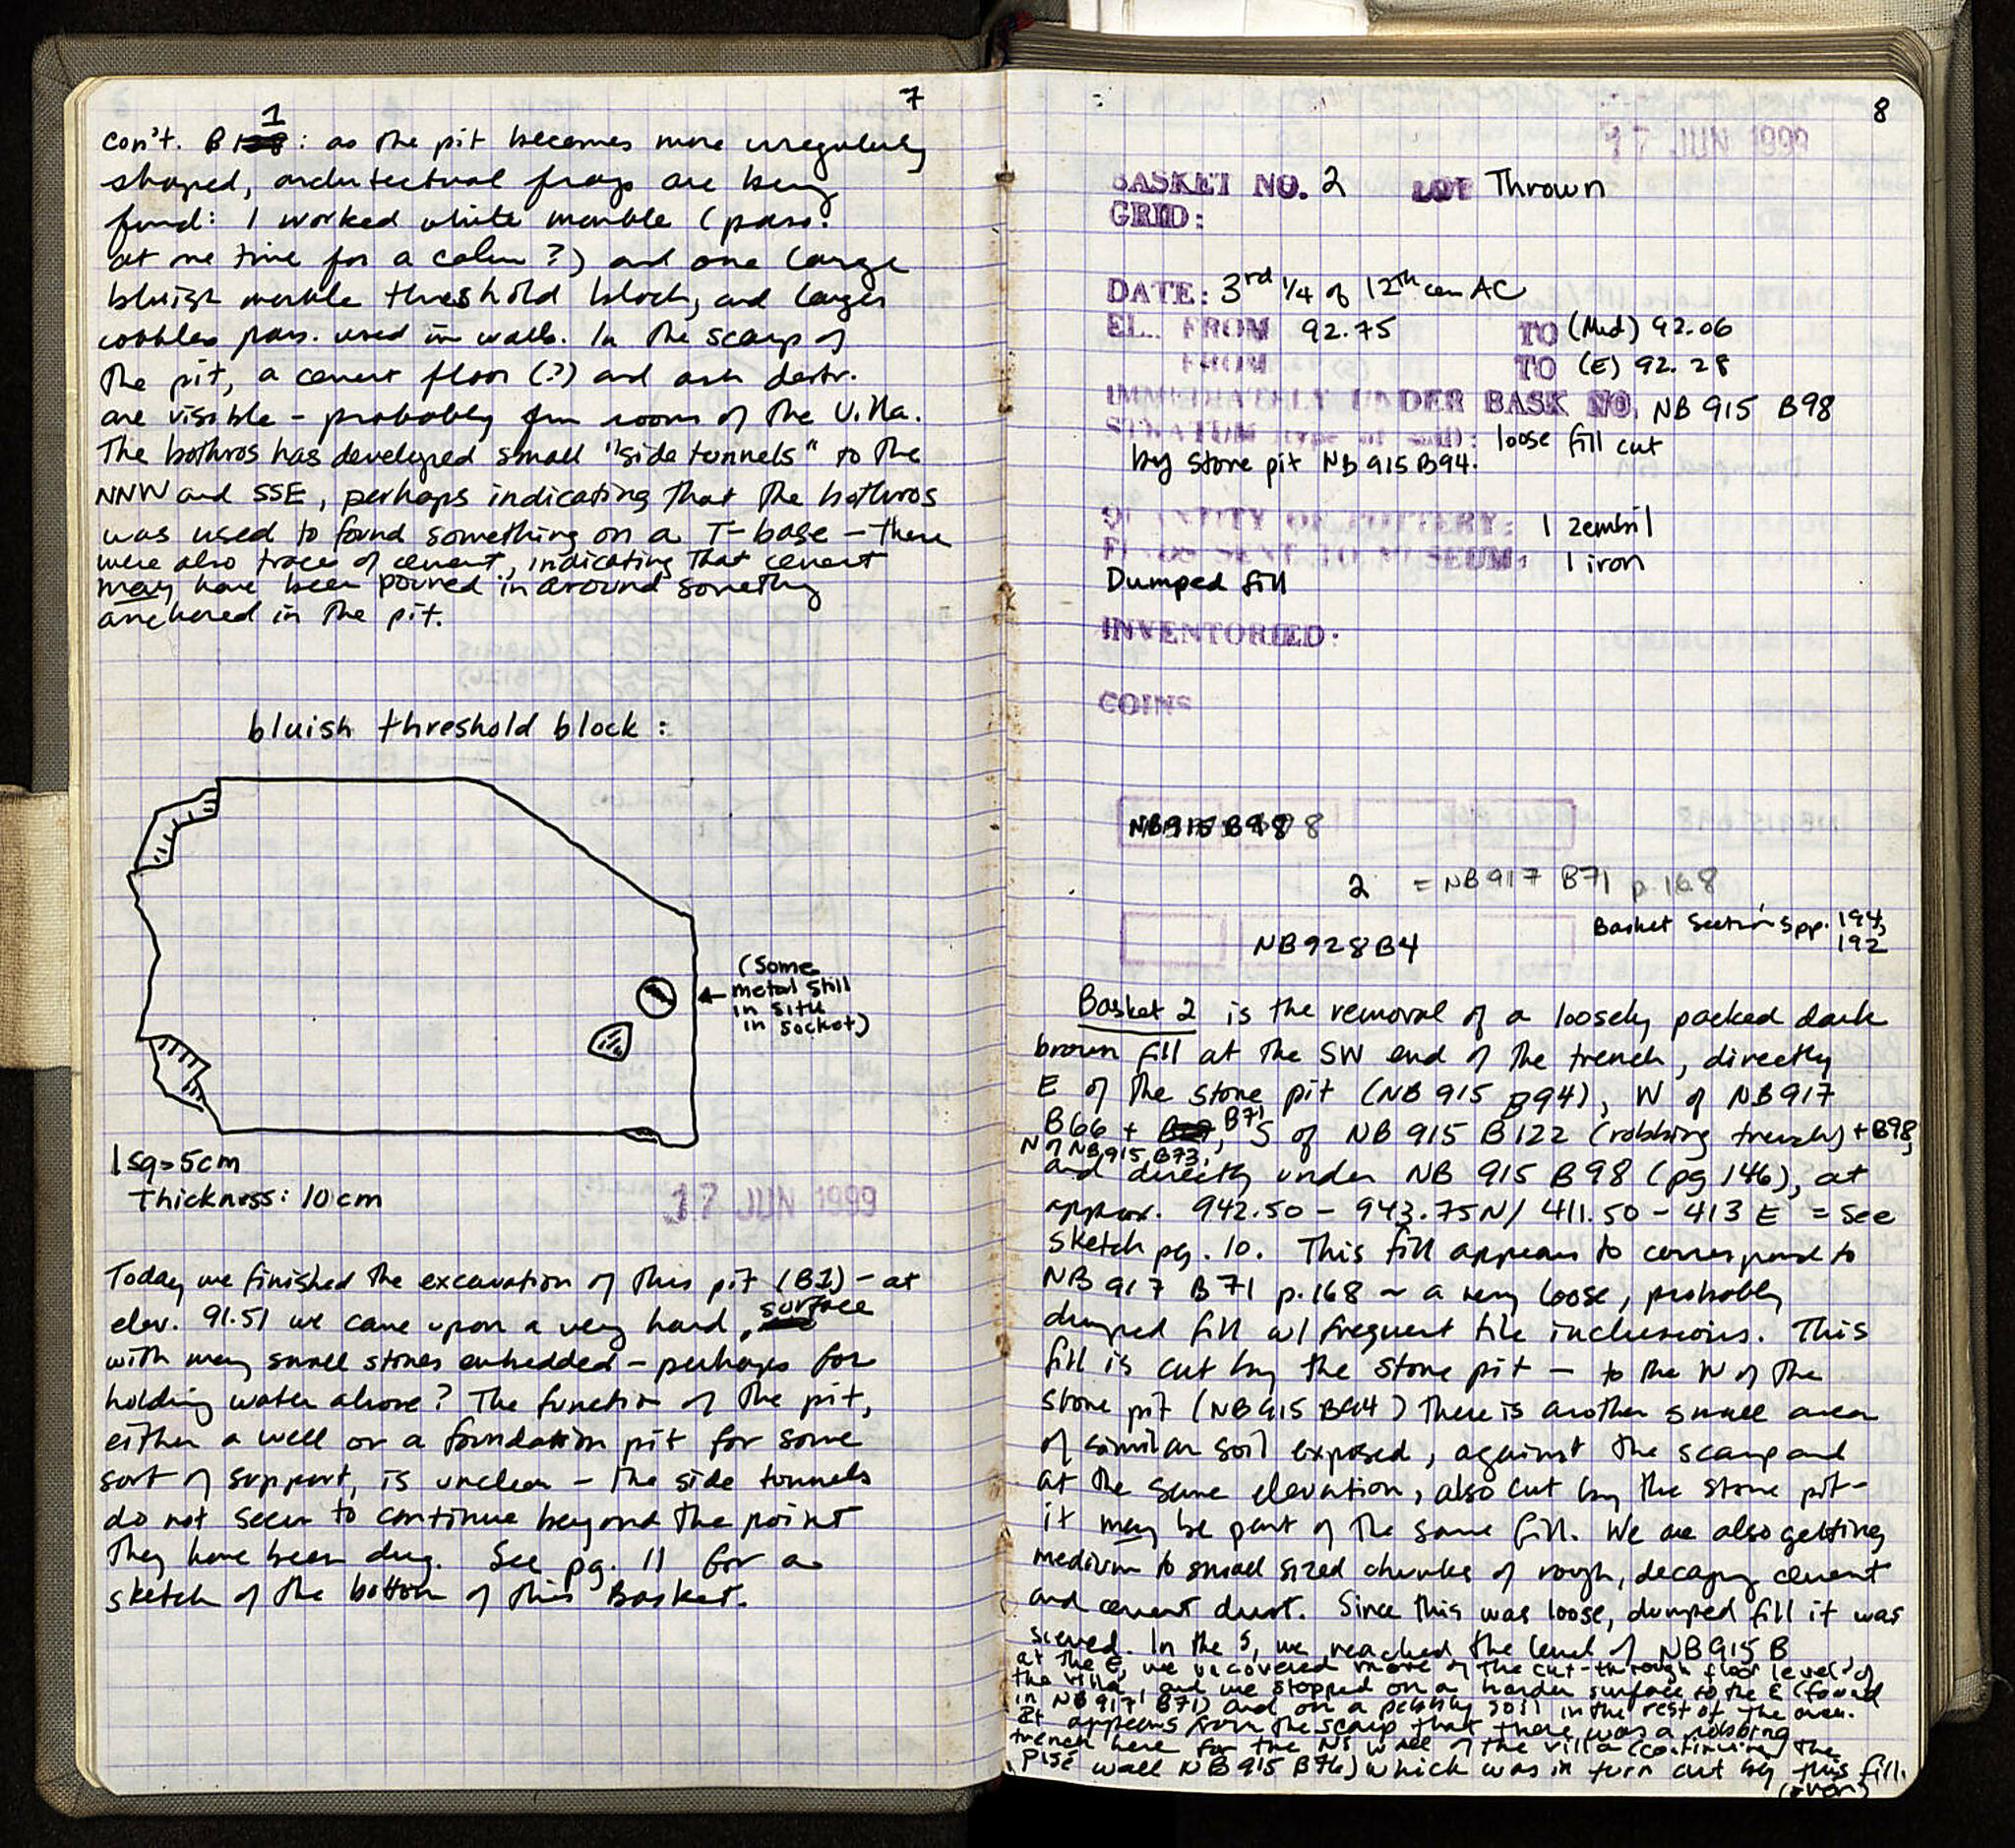 7
con't. B1: as the pit becomes more irregularly
shaped, architectural frags are being
found: 1 worked white marble (poss.
at one time for a column?) and one large
bluish marble threshold block, and larger
cobbles poss. used in walls. In the scarp of
the pit, a cement floor (?) and ash destr.
are visible - probably from rooms of the Villa.
The bothros has developed small "side tunnels" to the
NNW and SSE, perhaps indicating that the bothros
was used to found something on a T-base - there
were also traces of cement, indicating that cement
may have been poured in around something
anchored in the pit.
bluish threshold block:
(Some
metal still
in situ
in socket)
1 sq = 5cm
thickness: 10cm
17 JUN 1999
Today we finished the excavation of this pit (B1) - at
elev. 91.51 we came upon a very hard surface
with many small stones embedded - perhaps for
holding water above? The function of the pit,
either a well or a foundation pit for some
sort of support, is unclear - the side tunnels
do not seem to continue beyond the point
they have been dug. See pg. 11 for a
sketch of the bottom of this Basket.
8
17 JUN 1999
BASKET NO. 2 LOT Thrown
GRID:
DATE: 3rd 1/4 of 12th cen AC
EL. FROM 92.75 TO (Mid) 92.06
FROM TO (E) 92.28
IMMEDIATELY UNDER BASK NO. NB 915 B98
STRATUM (type of soil): loose fill cut
by stone pit NB 915 B94.
QUANTITY OF POTTERY: 1 zembil
FINDS SENT TO MUSEUM: 1 iron
Dumped fill
INVENTORIED:
COINS
NB915 B98
2 = NB 917 B71 p. 168
Basket Sections pp. 194,
192
NB928B4
Basket 2 is the removal of a loosely packed dark
brown fill at the SW end of the trench, directly
E of the stone pit (NB 915 B94), W of NB917
B66 + B71, S of NB 915 B122 (robbing trench) + B98,
N of NB 915 B73,
and directly under NB 915 B98 (pg 146), at
approx. 942.50 - 943.75N/ 411.50 - 413 E = see
sketch pg. 10. This fill appears to correspond to
NB 917 B71 p.168 ~ a very loose, probably
dumped fill w/ frequent tile inclusions. This
fill is cut by the stone pit - to the N of the
stone pit (NB915 B94) there is another small area
of similar soil exposed, against the scarp and
at the same elevation, also cut by the stone pit -
it may be part of the same fill. We are also getting
medium to small sized chunks of rough, decaying cement
and cement dust. Since this was loose, dumped fill it was
sieved. In the S, we reached the level of NB 915 B
at the E, we uncovered more of the cut-through floor levels of
the villa, and we stopped on a harder surface to the E (found
in NB 917 B71) and on a pebbly soil in the rest of the area.
It appears from the scarp that there was a robbing
trench here for the NS wall of the villa (continuing the
Pisé wall NB 915 B76) which was in turn cut by this fill.
(over)